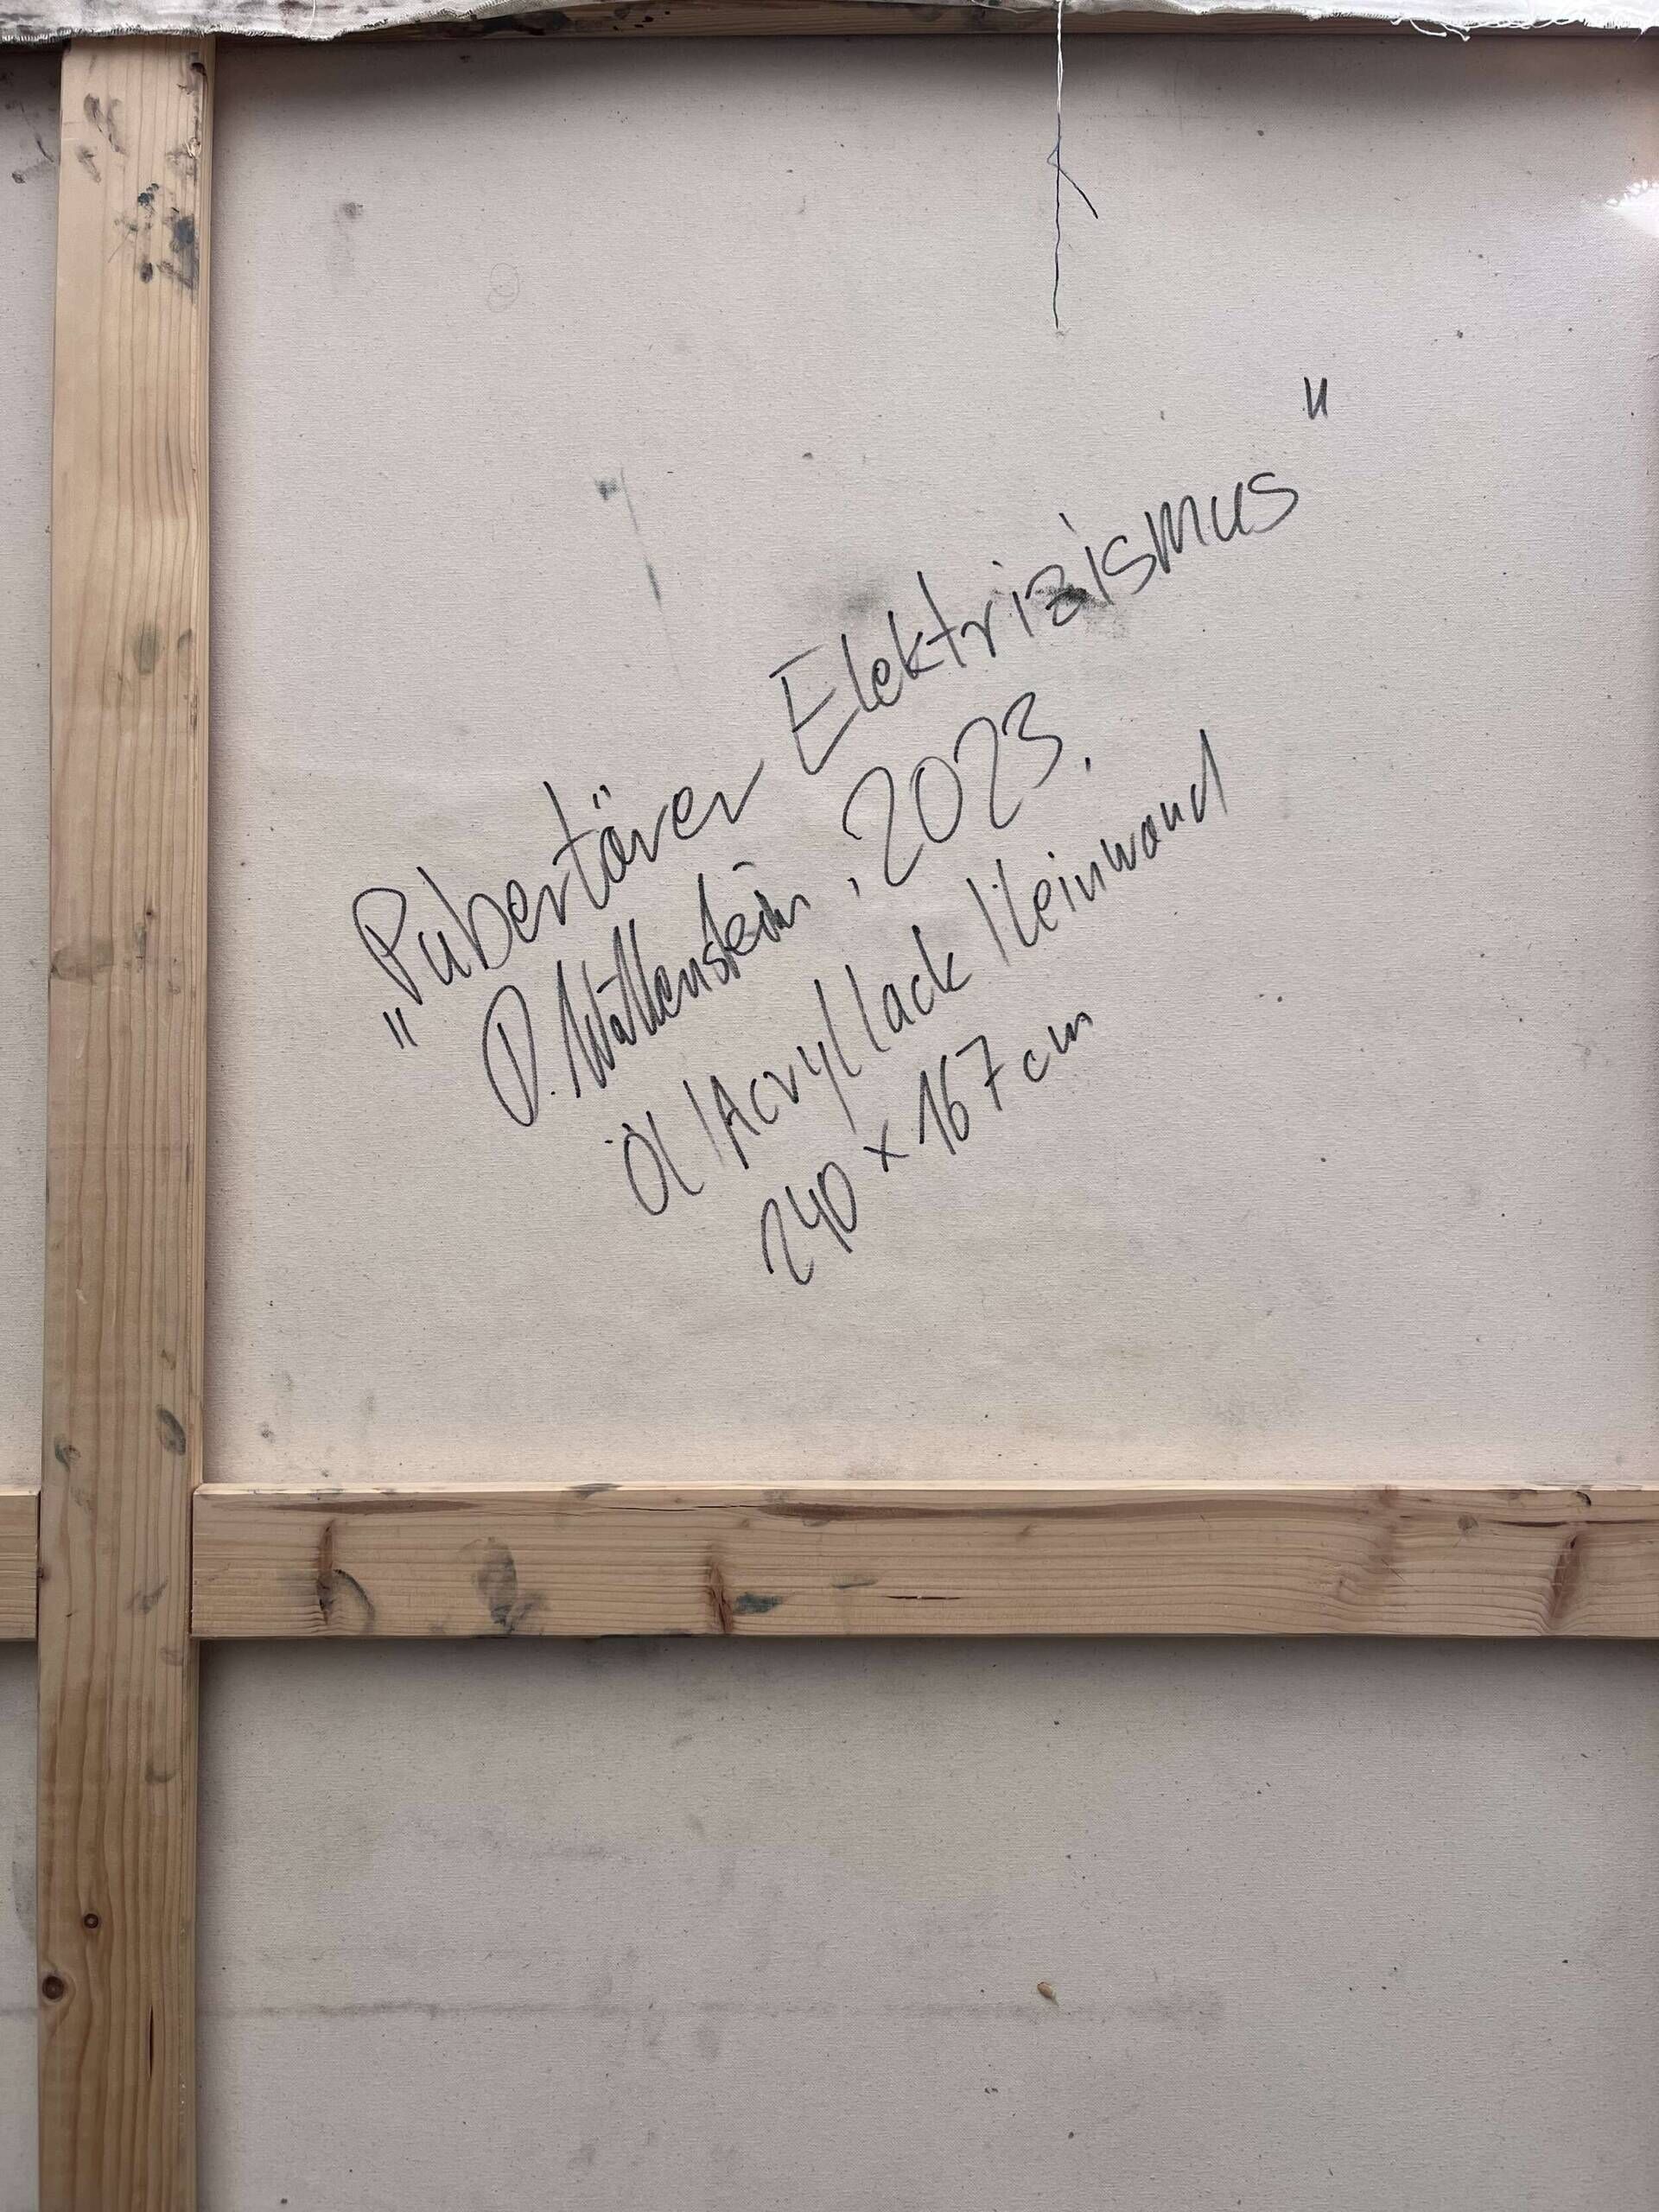 "Pubertärer Elektrizismus"
D. , 2023.
Öl/Acryl/lack/Leinwand
240 x 167 cm